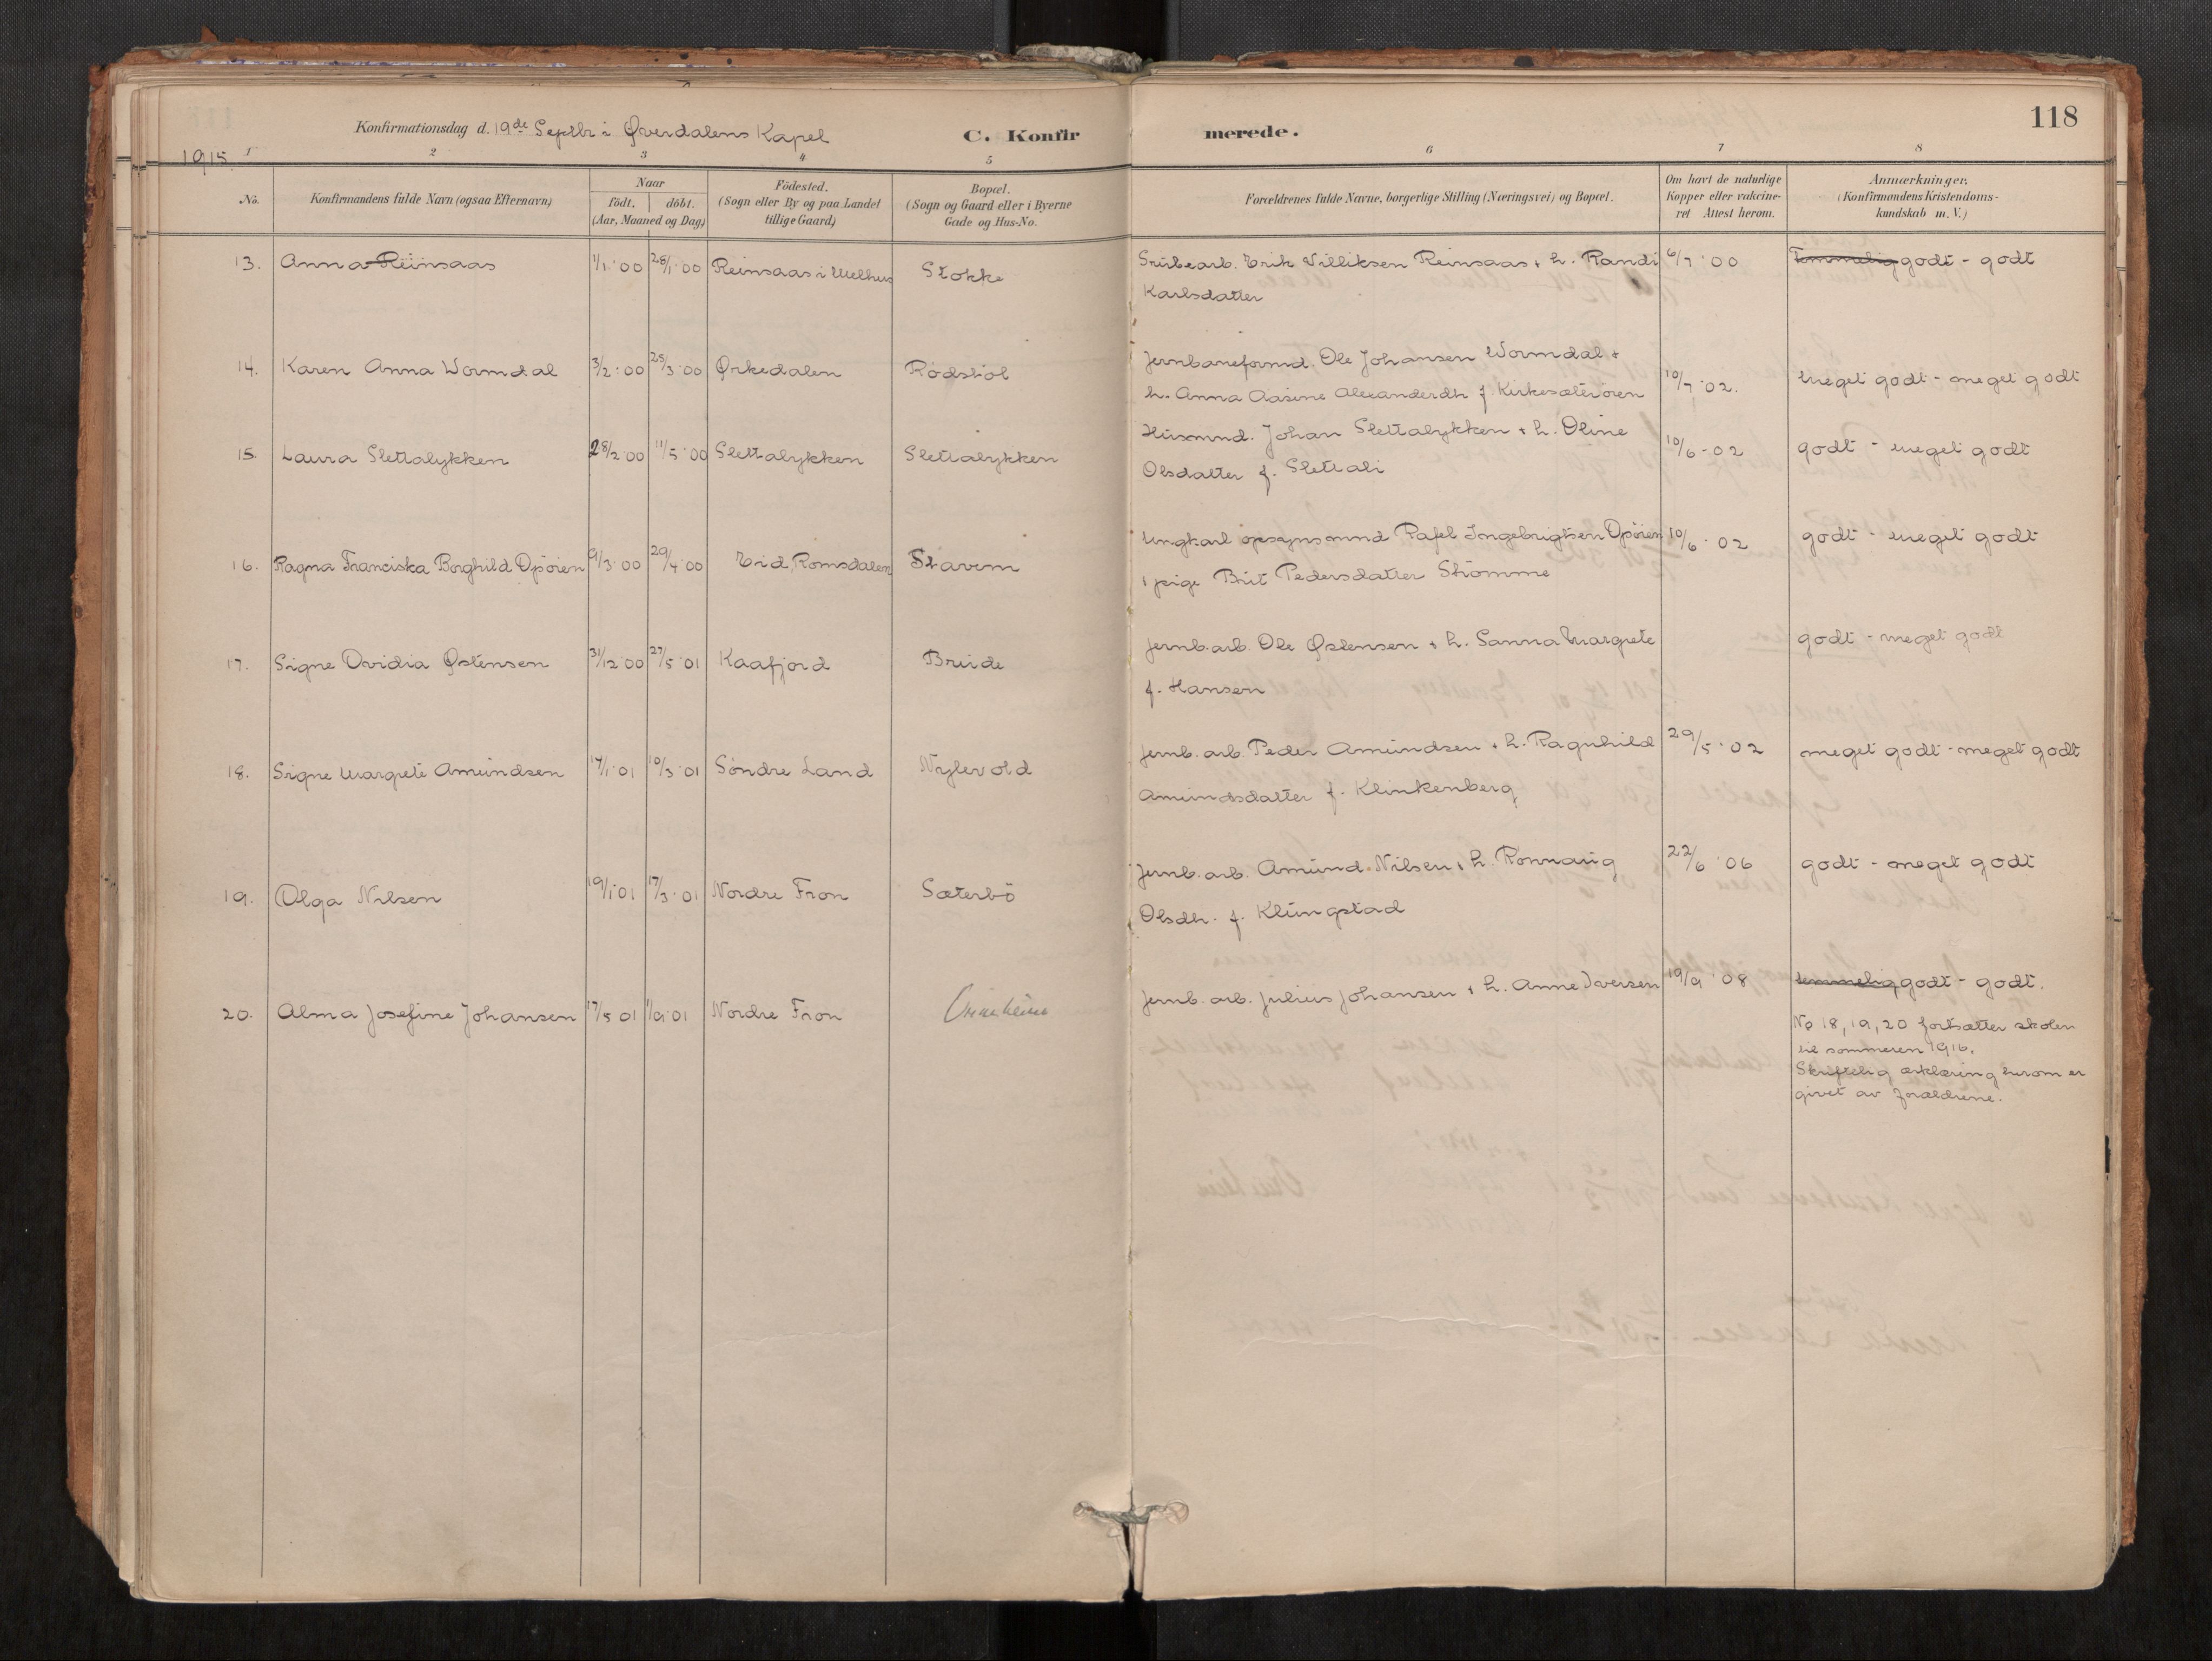 118
Konfirmationsdag d. 19de Septbr i Øverdalens Kapel
C. Konfirmerede.
1915
1 2 3 4 5 6 7 8
No.
Konfirmandens fulde Navn (ogsaa Efternavn)
Naar
födt. döbt.
(Aar, Maaned og Dag)
Födested.
(Sogn eller By og paa Landet
tillige Gaard)
Bopæl.
(Sogn og Gaard eller i Byerne
Gade og Hus-No.
Forældrenes fulde Navne, borgerlige Stilling (Næringsvei) og Bopæl.
Om havt de naturlige
Kopper eller vakcine-
ret Attest herom.
Anmærkninger.
(Konfirmandens Kristendoms-
kundskab m. V.)
13. Anna Reinsaas 1/1·00 28/1·00 Reinsaas i Melhus Stokke Grubearb. Erik Villiksen Reinsaas + h. Randi 6/7·00 Temmelig godt - godt
Karlsdatter
14. Karen Anna Wormdal 3/2·00 25/3·00 Ørkedalen Rødstøl Jernbaneformd. Ole Johansen Wormdal + 10/7·02. meget godt - meget godt
h. Anna Aasine Alexanderdtr f. Kirkesæterøren
15. Laura Slettalykken 28/2·00 11/5·00 Slettalykken Slettalykken Husmnd. Johan Slettalykken + h. Oline 10/6-02 godt - meget godt
Olsdatter f. Slettali
16. Ragna Franciska Borghild Opören 9/3·00 29/4·00 Eid, Romsdalen Stavem Ungkarl opsynsmnd Rafel Ingebrigtsen Opören 10/6·02 godt - meget godt
+ pige Brit Pedersdatter Strömme
17. Signe Ovidia Østensen 31/12·00 27/5·01 Kaafjord Brude Jernb.arb. Ole Østensen + h. Sanna Margrete godt - meget godt
f. Hansen
18. Signe Margrete Amundsen 17/1·01 10/3·01 Söndre Land Nylevold Jernb. arb. Peder Amundsen + h. Ragnhild 29/5·02 meget godt - meget godt
Amundsdatter f. Klinkenberg
19. Olga Nilsen 19/1·01 17/3·01 Nordre Fron Sæterbö Jernb. arb. Amund Nilsen + h. Ronnaug 22/6·06 godt - meget godt
Olsdtr. f. Klungstad
20. Alma Josefine Johansen 17/5 01 1/9·01 Nordre Fron Jernb. arb. Julius Johansen + h. Anne Iversen 19/9·08 temmelig godt - godt.
No 18, 19, 20 fortsætter skolen
til sommeren 1916.
Skriftelig erklæring herom er
givet av forældrene.